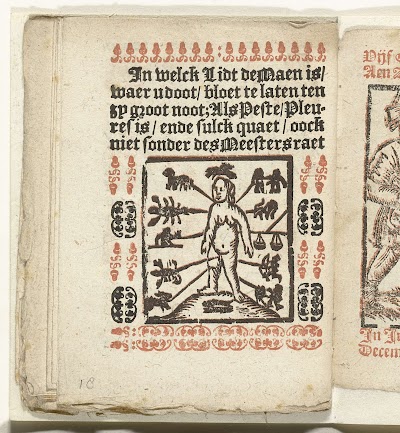 In welck Lidt de Maen is/
waer u doot/ bloet te laten ten
zy groot noot; Als Peste/ Pleu-
res is/ ende sulck quaet/ oock
niet sonder des Meesters raet
18
Vijf
Aen
In Ju
Decem